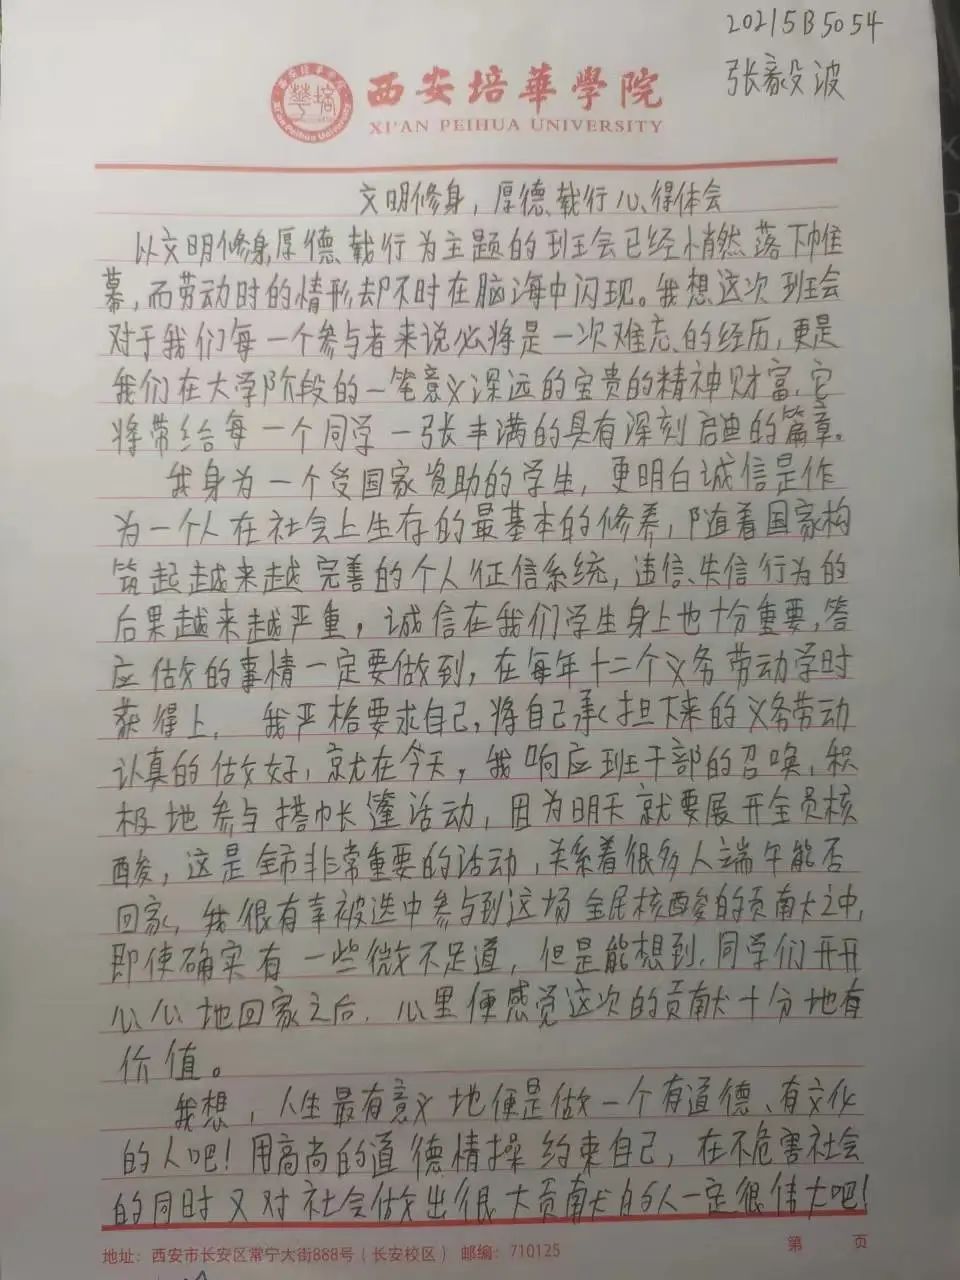 20215B5054
张毅波
西安培華學院
XI'AN PEIHUA UNIVERSITY
文明修身，厚德载行心得体会
以文明修身厚德载行为主题的班会已经悄然落下帷
幕，而劳动时的情形却不时在脑海中闪现。我想这次班会
对于我们每一个参与者来说必将是一次难忘的经历，更是
我们在大学阶段的一笔意义深远的宝贵的精神财富，它
将带给每一个同学一张丰满的具有深刻启迪的篇章。
我身为一个受国家资助的学生，更明白诚信是作
为一个人在社会上生存的最基本的修养，随着国家构
筑起越来越完善的个人征信系统，违信、失信行为的
后果越来越严重，诚信在我们学生身上也十分重要，答
应做的事情一定要做到，在每年十二个义务劳动学时
获得上，我严格要求自己，将自己承担下来的义务劳动
认真的做好，就在今天，我响应班干部的召唤，积
极地参与搭帐篷活动，因为明天就要展开全员核
酸，这是全市非常重要的活动，关系着很多人端午能否
回家，我很有幸被选中参与到这场全民核酸的贡献之中，
即使确实有一些微不足道，但是能想到，同学们开开
心心地回家之后，心里便感觉这次的贡献十分地有
价值。
我想，人生最有意义地便是做一个有道德、有文化
的人吧！用高尚的道德情操约束自己，在不危害社会
的同时又对社会做出很大贡献的人一定很伟大吧！
地址：西安市长安区常宁大街888号（长安校区） 邮编：710125
第 页